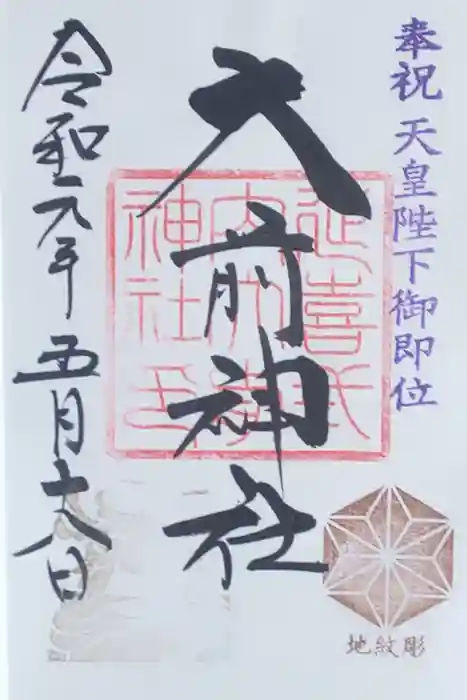 奉祝 天皇陛下御即位
大前神社
延喜式
内大前
神社印
令和元年五月十八日
地紋彫